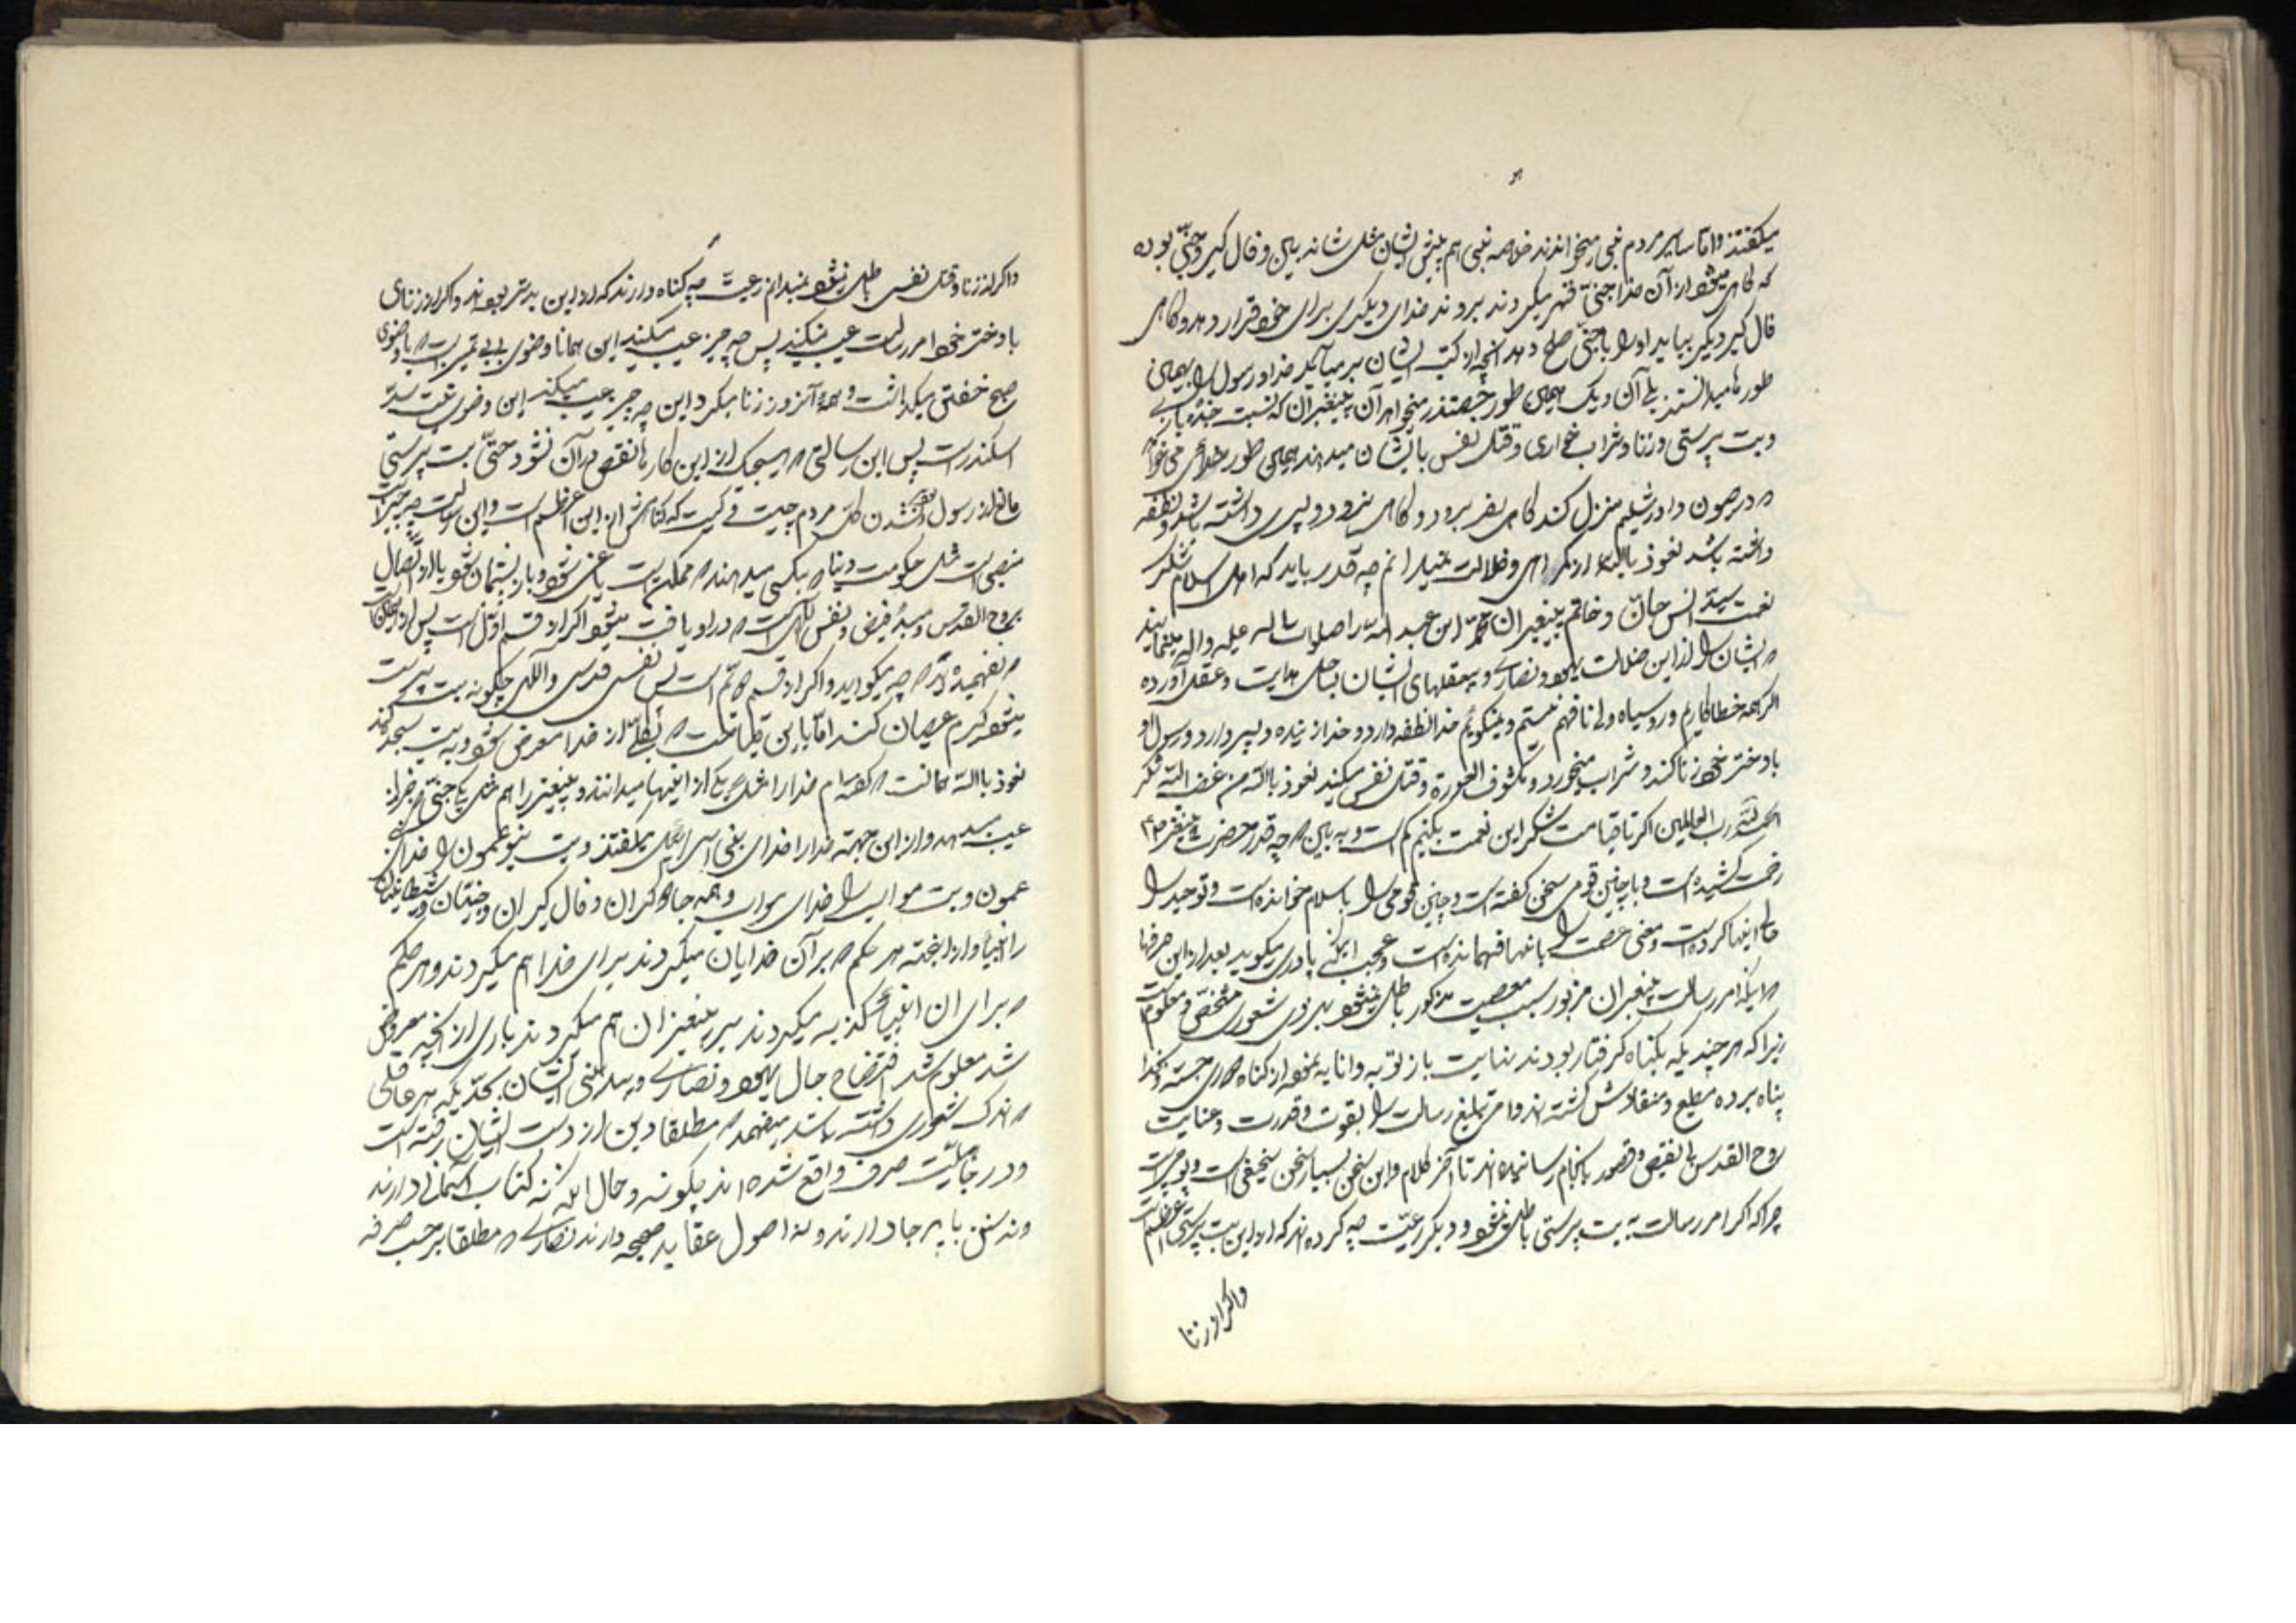 میکفتند و اما سایر مردم نبی میخواندند خلاصه نبی هم پیش ایشان مثل شانه بین و فال کیر و جنّی بوده
که کاهی میشود از آن خدا جنّی قهر میکردند بروند خدای دیکری برای خود قرار دهد و کاهی
فال کیر دیکر بیاید او را با جنّی صلح دهد آنچه از کتب ایشان بر میآید خدا و رسول را بهمان
طورها میدانستند بلی آن دیک همان طور چغندر میخواهد آن پیغمبران که نسبت
و بت پرستی و زنا و شراب خواری و قتل نفس بایشان میدهند همان طور خدائی می خواهد
که در صهیون و اورشلیم منزل کند کاهی بسفر برود و کاهی نرود و پسری داشته باشد و نطفه
داشته باشد نعوذ بالله از کمراهی و ضلالت نمیدانم چه قدر باید که اهل اسلام شکر
نعمت سید انس و جان و خاتم پیغمبران محمّد ابن عبد الله را صلوات الله علیه و اله بنمایند
که ایشان را از این ضلالت یهود و نصاری و بیعقلهای ایشان بساحل هدایت و عقل آورده
اکر همه خطا کاریم و رو سیاه ولی نافهم نیستیم و نمیکوئیم خدا نطفه دارد و خدا زنده و پسر دارد و رسول او
با دختر خود زنا کند و شراب میخورد و مکشوف العورة و قتل نفس میکند نعوذ بالله من غضب الله شکر
الحمد لله رب العالمین اکر تا قیامت شکر این نعمت بکنیم کم است و به بین که چه قدر حضرت پیغمبر ص
زحمت کشیده است و با چنین قومی سخن کفته است و چنین قومی را باسلام خوانده است و توحید را
حالی اینها کرده است و معنی عصمت را باینها فهمانده است و عجب اینکه پادری میکوید بعد از این حرفها
که اینکه امر رسالت پیغمبران مزبور بسبب معصیت مذکور باطل نمیشود بر ذی شعوری مشخّص و معلوم است
زیرا که هر چند یکه بکناه کرفتار بودند بنهایت باز توبه و انابه نموده از کناه دوری جسته و بخدا
پناه برده مطیع و منقادش کشته اند و امر تبلیغ رسالت را بقوت و قدرت و عنایت
روح القدس بی نقیص و قصور بانجام رسانیده اند تا آخر کلام و این سخن بسیار سخن سخیفی است و پوچی است
چرا که اکر امر رسالت به بت پرستی باطل نمیشود دیکر رعیّت چه کرده اند که از این بت پرستی عظیم است
و اکر از زنا
و اکر از زنا و قتل نفس باطل نمیشود نمیدانم رعیت چه کناه دارند که از این بدتر بوده اند و اکر از زنای
با دختر خود امر رسالت عیب نمیکند پس چه چیز عیب میکند این همانا وضوی بی بی تمیز است که با وضوی
صبح خفتن میکذاشت و همه آنروز زنا میکرد این چه چیز عیب میکند این وضوی نیست سدّ
اسکندر است پس این رسالتی که هیچیک از این کارها نقص در آن نشود حتّی بت پرستی
مانع از رسول شدن کل مردم چیست و کیست که کناهش از این اعظم است و این رسالت چه چیز است
منصبی است مثل حکومت دنیا که بکسی میدهند در مملکت یاغی نشود یا از اتّصال
بروح القدس و مبدء فیض و نفس الهی است که در او یافت میشود اکر از قسم اوّل است پس
که نفهمیده اند که چه میکویند و اکر از قسم دوّم است پس نفس قدسی و الهی چکونه بت پرست
میشود کیرم عصیان کند امّا باین قباحت که بکلّی از خدا معرض شود و به بت سجده کند
نعوذ بالله همانست که کفته ام خدا را مثل یکی از اینها میدانند و پیغمبر را هم مثل یک جنّی
عیب میدهد و از این جهته خدا را خدای بنی اسرائیل میکفتند و بت بنو عمون را خدای
عمون و بت مواب را خدای مواب و همه جادوکران و فال کیران و جنّیان و شیاطین
را انبیا و از اینجهته هر حکم که بر آن خدایان میکردند برای خدا هم میکردند و هر حکم
که برای ان انبیا کذبه میکردند بر پیغمبران هم میکردند باری از آنچه معروض
شد معلوم شد افتضاح حال یهود و نصاری و بیدینی ایشان بحدّیکه هر عاقلی
که اندک شعوری داشته باشد میفهمد که مطلقا دین از دست ایشان رفته است
و در جاهلیّت صرف واقع شده اند چکونه و حال اینکه نه کتاب آسمانی دارند
و نه سنن پا بر جا دارند و نه اصول عقاید صحیحه دارند نصاری که مطلقا بر حسب صرفه